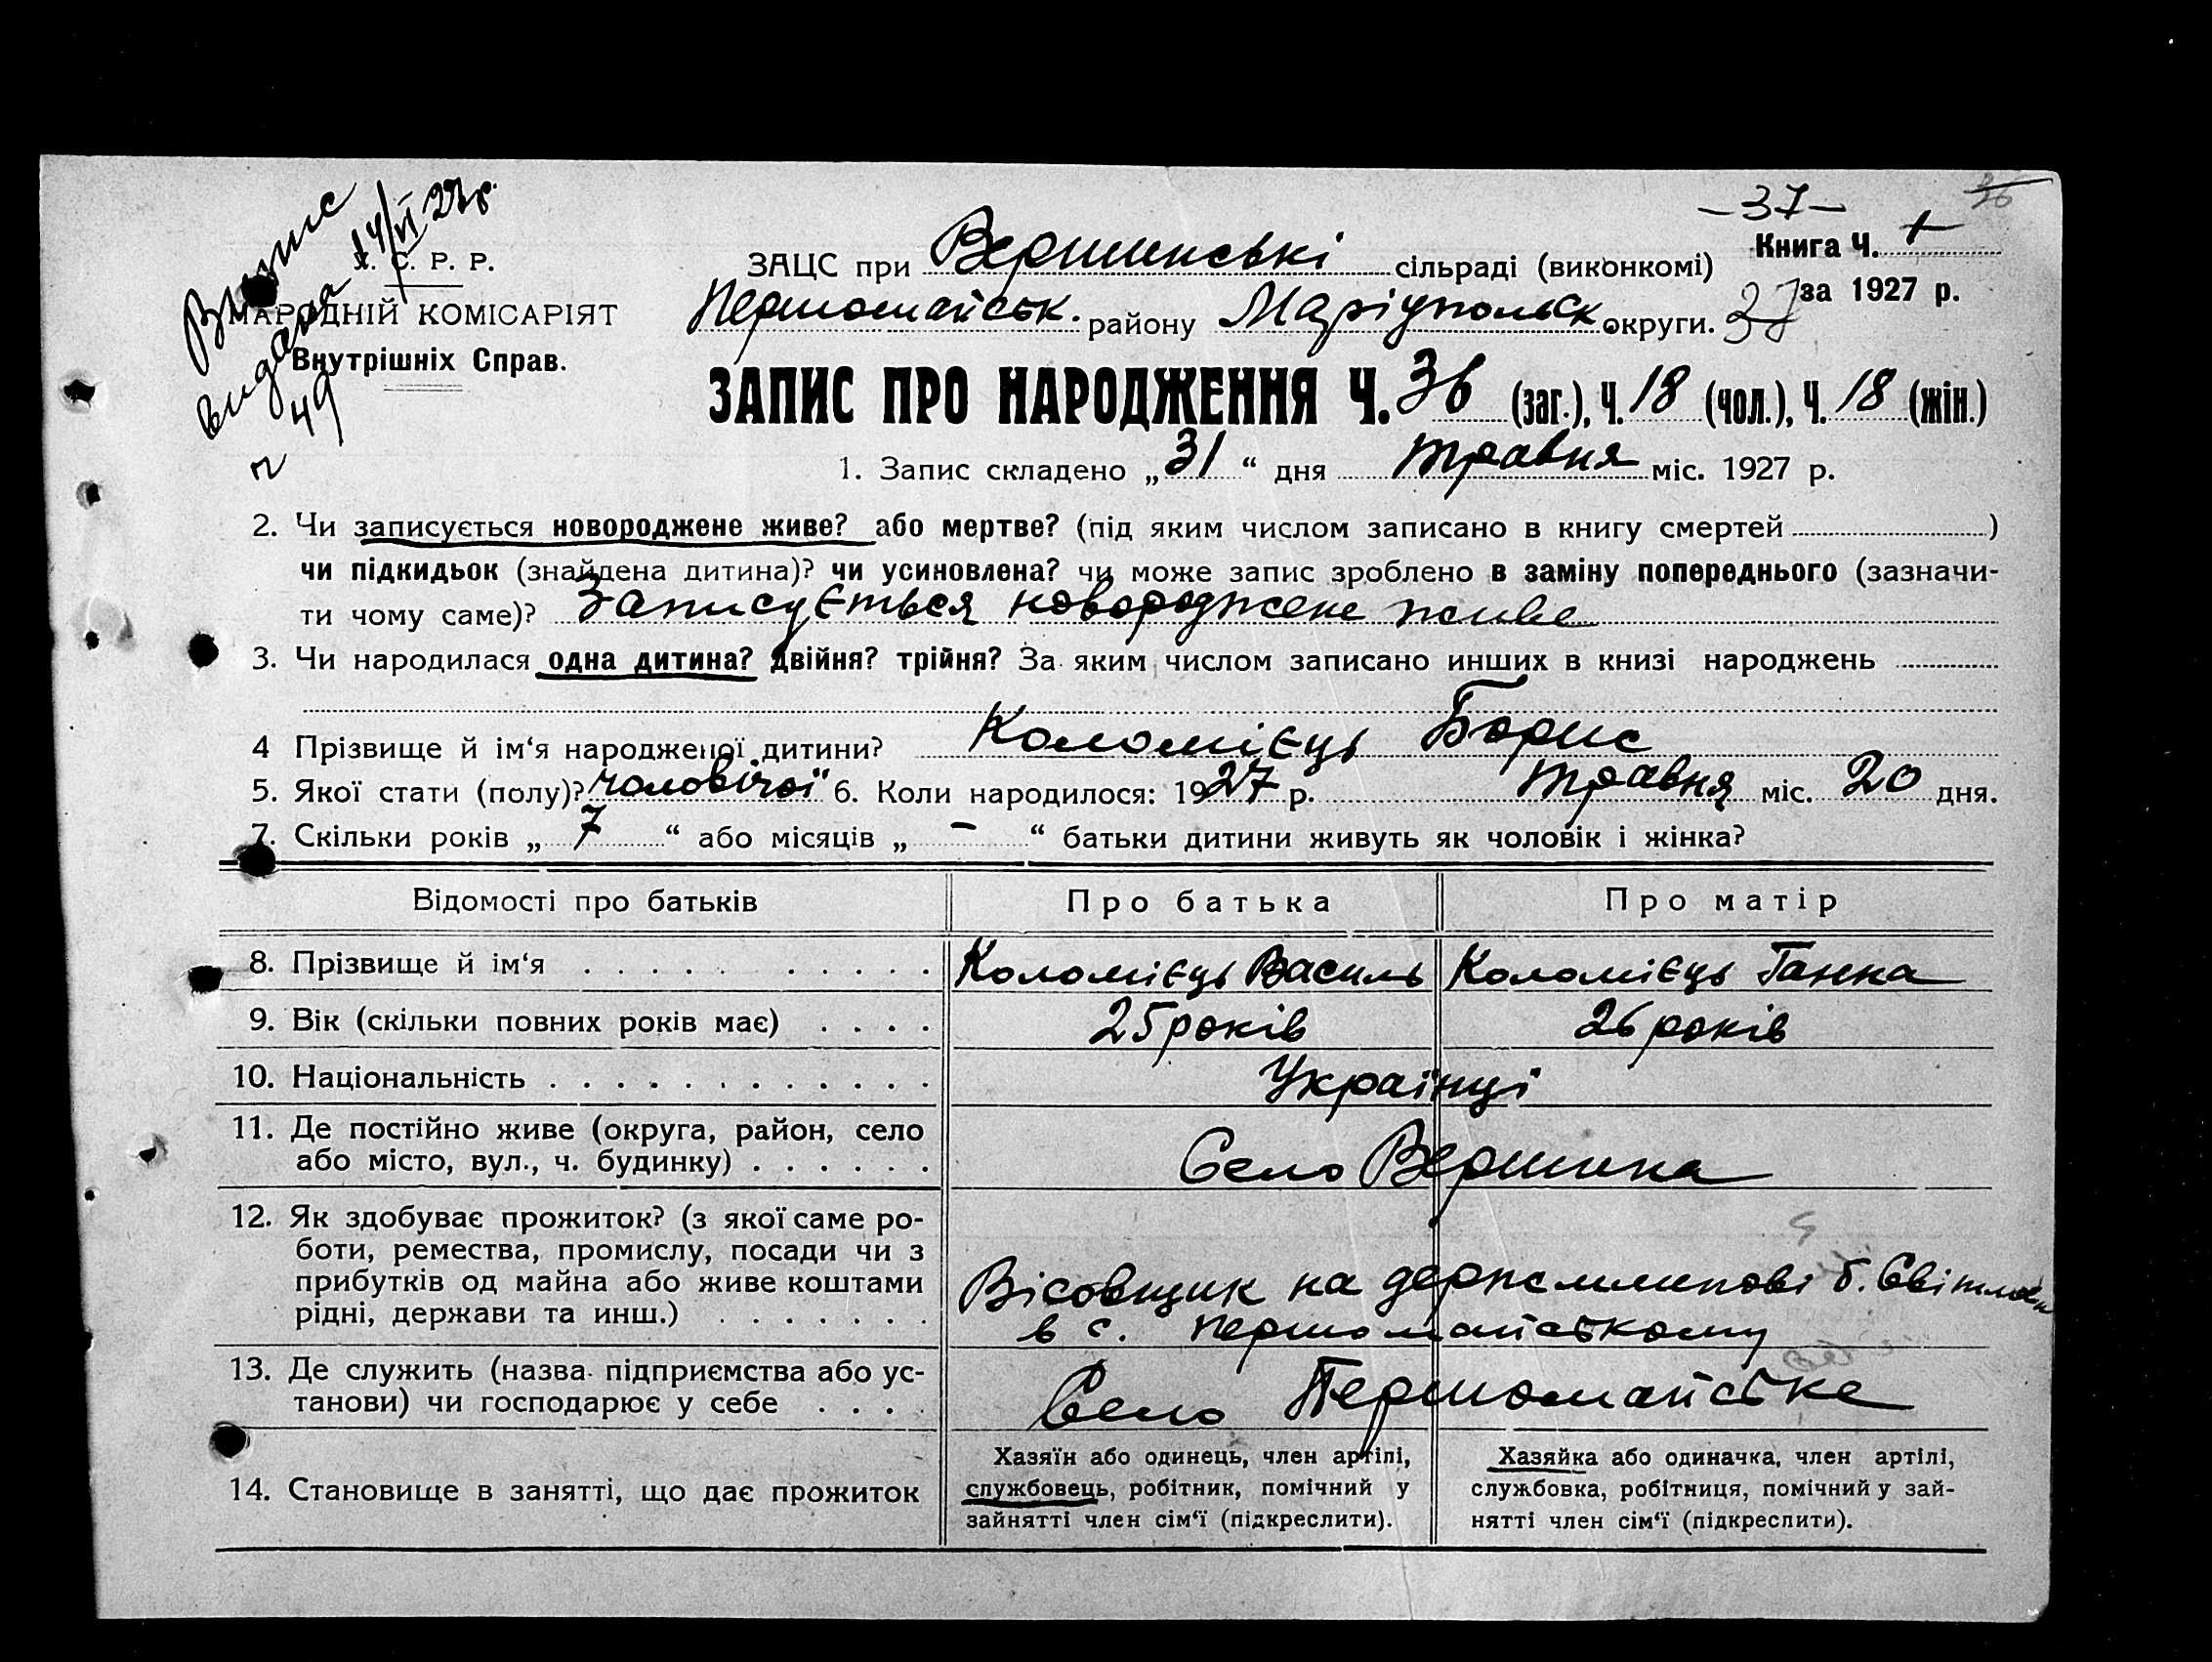 Випис
видана 14/VI 27 р.
н 49
У. С. Р. Р.
НАРОДНІЙ КОМІСАРІЯТ
Внутрішніх Справ.
–37–
36
Книга Ч. 1
за 1927 р.
ЗАЦС при Вершинські сільраді (виконкомі)
Першомайськ. району Маріупольск округи. 37
ЗАПИС ПРО НАРОДЖЕННЯ Ч. 36 (заг.), Ч. 18 (чол.), Ч. 18 (жін.)
1. Запис складено „31“ дня травня міс. 1927 р.
2. Чи записується новороджене живе? або мертве? (під яким числом записано в книгу смертей )
чи підкидьок (знайдена дитина)? чи усиновлена? чи може запис зроблено в заміну попереднього (зазначи-
ти чому саме)? Записується новороджене живе
3. Чи народилася одна дитина? двійня? трійня? За яким числом записано инших в книзі народжень
4 Прізвище й ім‘я народженої дитини? Коломієць Борис
5. Якої стати (полу)? чоловічої 6. Коли народилося: 1927 р. травня міс. 20 дня.
7. Скільки років „ 7 “ або місяців „ – “ батьки дитини живуть як чоловік і жінка?
Відомості про батьків Про батька Про матір
8. Прізвище й ім‘я . . . . . . . . . . Коломієць Василь Коломієць Ганна
9. Вік (скільки повних років має) . . . . 25 років 26 років
10. Національність . . . . . . . . . . . . Українці
11. Де постійно живе (округа, район, село
або місто, вул., ч. будинку) . . . . . . Село Вершина
12. Як здобуває прожиток? (з якої саме ро-
боти, ремества, промислу, посади чи з
прибутків од майна або живе коштами
рідні, держави та инш.) . . . . . . .
Вісовщик на держмлинові б.
в с. Першомайському
13. Де служить (назва підприємства або ус-
танови) чи господарює у себе . . . . Село Першомайське
14. Становище в занятті, що дає прожиток
Хазяїн або одинець, член артілі,
службовець, робітник, помічний у
зайнятті член сім‘ї (підкреслити).
Хазяйка або одиначка, член артілі,
службовка, робітниця, помічний у зай-
нятті член сім‘ї (підкреслити).